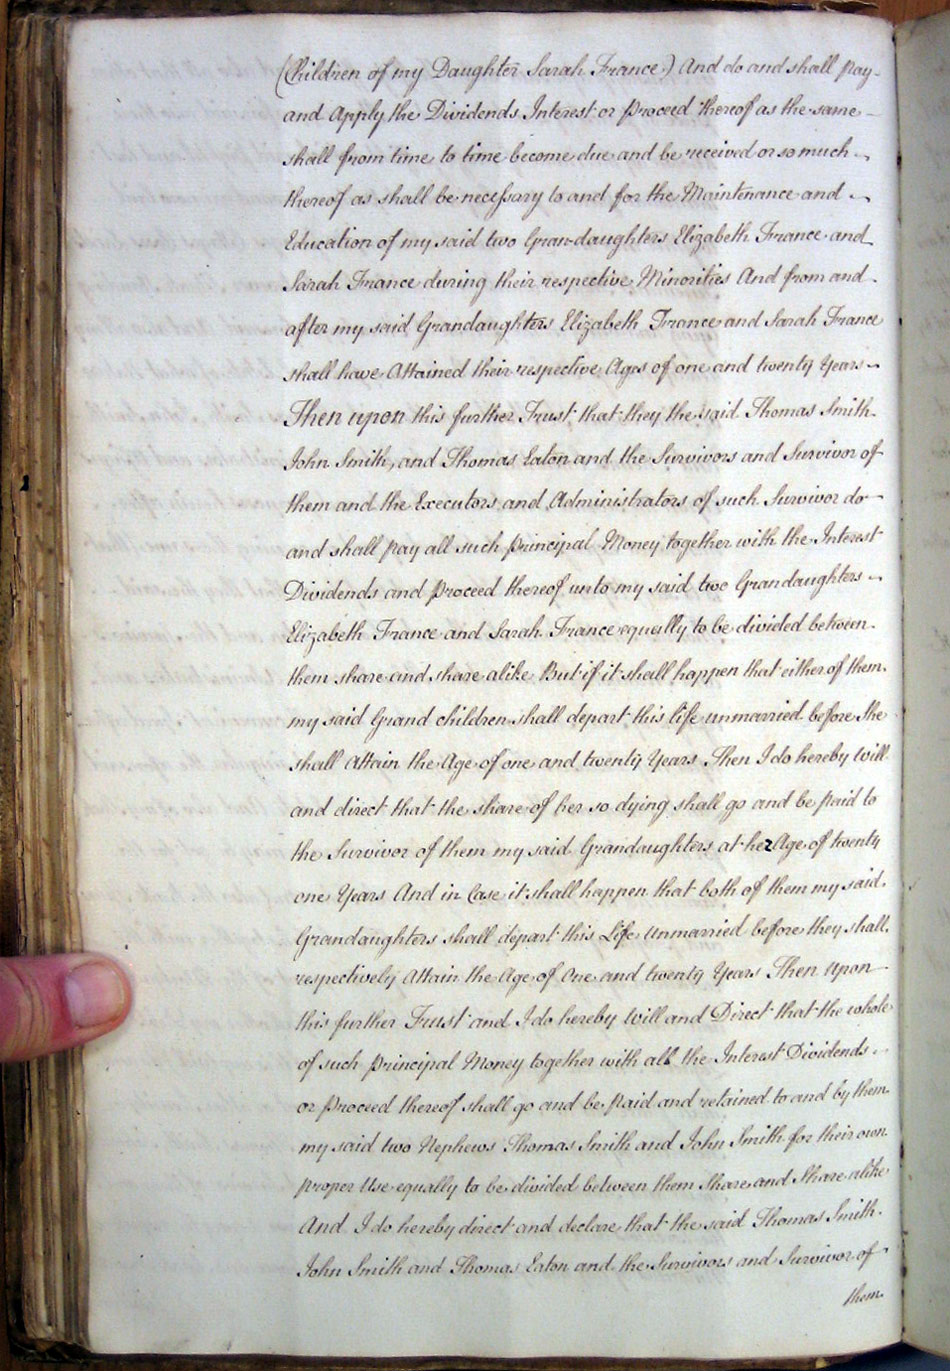 (Children of my Daughter Sarah France) And do and shall Pay
and Apply the Dividends Interest or Proceed thereof as the same
shall from time to time become due and be received or so much
thereof as shall be necessary to and for the Maintenance and
Education of my said two Gran-daughters Elizabeth France and
Sarah France during their respective Minorities And from and
after my said Grandaughters Elizabeth France and Sarah France
shall have Attained their respective Ages of one and twenty Years
Then upon this further Trust that they the said Thomas Smith
John Smith, and Thomas Eaton and the Survivors and Survivor of
them and the Executors and Administrators of such Survivor do
and shall Pay all such Principal Money together with the Interest
Dividends and Proceed thereof unto my said two Grandaughters
Elizabeth France and Sarah France equally to be divided between
them share and share alike But if it shall happen that either of them
my said Grand children shall depart this life unmarried before she
shall Attain the Age of one and twenty Years Then I do hereby Will
and direct that the share of her so dying shall go and be Paid to
the Survivor of them my said Grandaughters at her Age of twenty
one Years And in Case it shall happen that both of them my said
Grandaughters shall depart this Life Unmarried before they shall
respectively Attain the Age of One and twenty Years Then upon
this further Trust and I do hereby Will and Direct that the whole
of such Principal Money together with all the Interest Dividends
or Proceed thereof shall go and be Paid and retained to and by them
my said two Nephews Thomas Smith and John Smith for their own
proper Use equally to be divided between them Share and Share alike
And I do hereby direct and declare that the said Thomas Smith
John Smith and Thomas Eaton and the Survivors and Survivor of
them